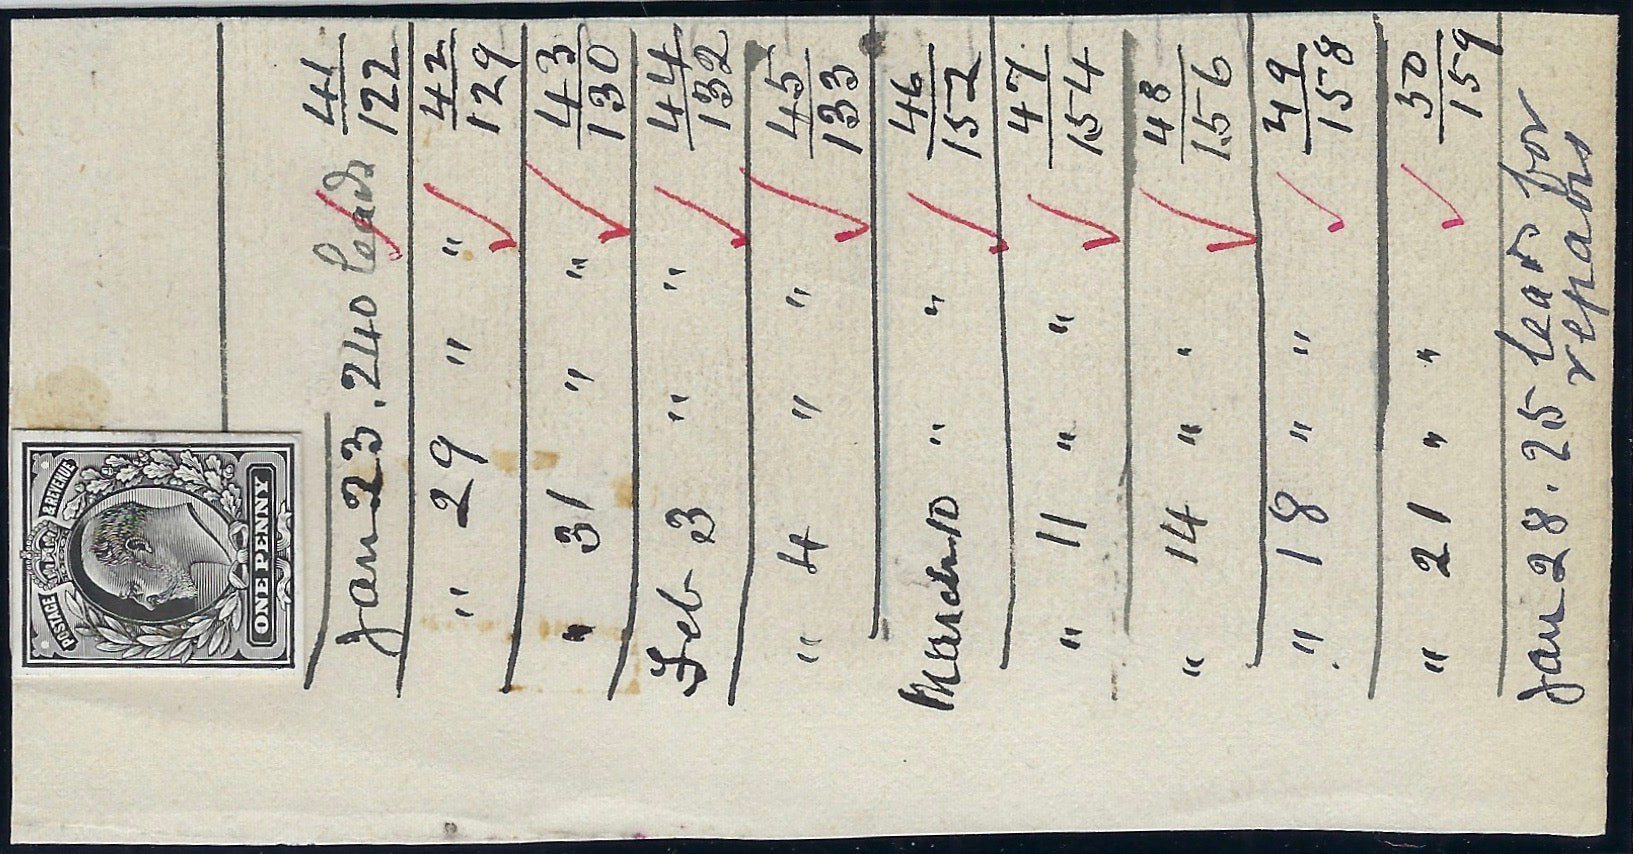 POSTAGE & REVENUE
ONE PENNY
Jan 23. 240 leads 41/122
" 29 " " 42/129
" 31 " " 43/130
Feb 3 " " 44/132
" 4 " " 45/133
March 10 " " 46/152
" 11 " " 47/154
" 14 " " 48/156
" 18 " " 49/158
" 21 " " 50/159
Jan 28. 25 leads for
repairs